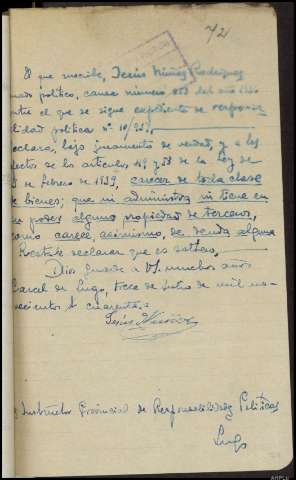 72
El que suscribe, Jesús Núñez Rodríguez
político, causa número del año
contra el que se sigue expediente de responsa
ilidad política nº
eclara, bajo juramento de verdad, y a los
fectos de los artículos 49 y de la Ley de
de Febrero de 1939, carecer de toda clase
de bienes; que ni administra ni tiene en
su poder alguna propiedad de terceros,
como carece, asimismo, de deuda alguna
declarar que es soltero.
Dios guarde a V. muchos años
arcel de Lugo, trece de Julio de mil no-
vecientos cuarenta.=
Jesús Núñez
Instructor Provincial de Responsabilidades Políticas
Lugo